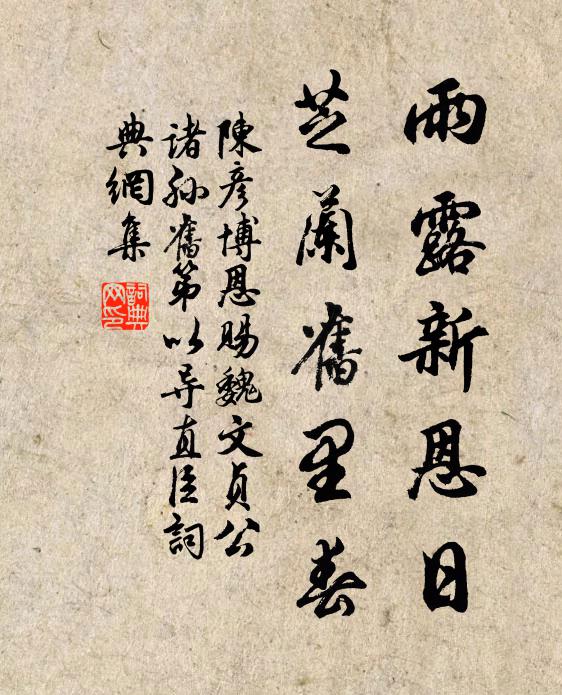 雨露新恩日
芝蘭舊里春
陳彦博恩賜魏文貞公
諸孫舊第以导直臣詞
典網集
詞典
网印